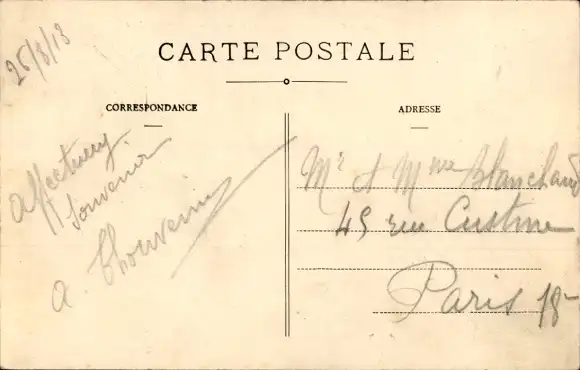 25/8/13
CARTE POSTALE
CORRESPONDANCE
ADRESSE
affectueux
Souvenir
a. Thouvenin
Mr et Mme Blanchard
45 rue Custine
Paris 18e